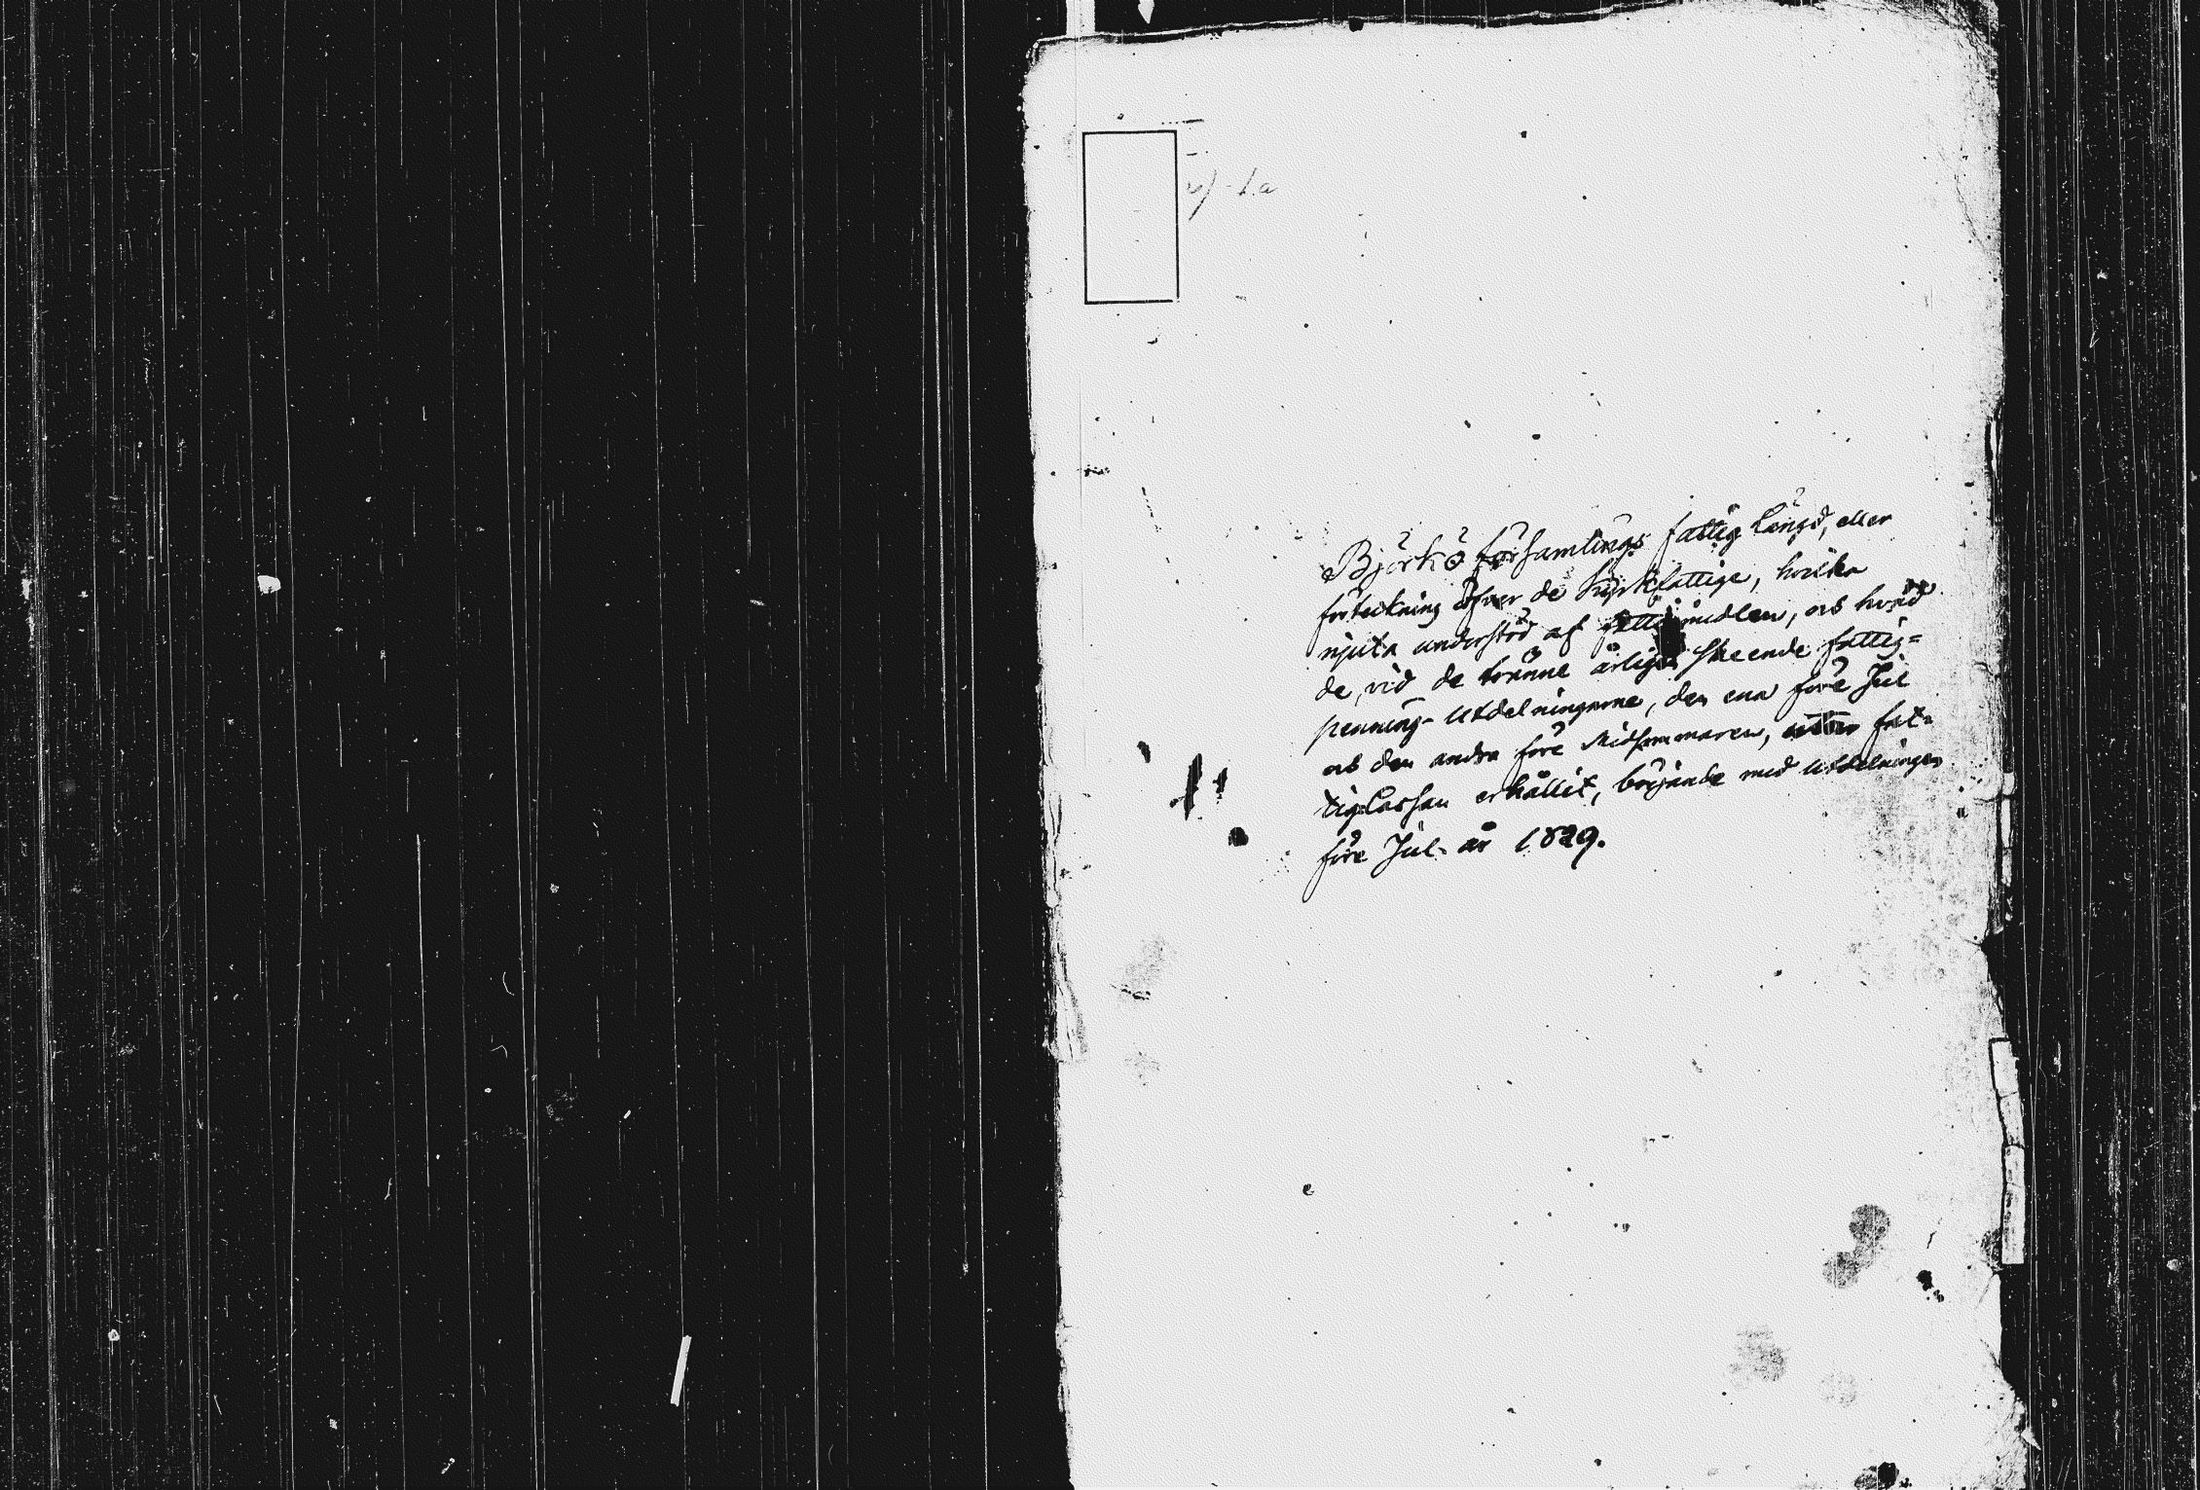 Björkö församlings fattig Längd, eller
förteckning öfver de Kyrkfattige, hvilka
njuta understöd af fattigmedlen, och hvad
de, vid de tvänne årliga skeende fattig=
penning-Utdelningarne, den ena före Jul
och den andra före Midsommaren, fat=
tigCassan erhållit, börjande med Utdelningen
före Jul år 1829.